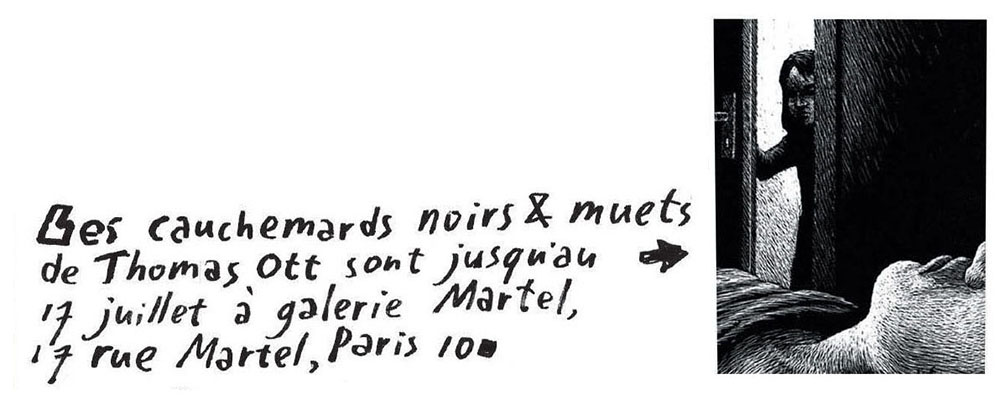 Les cauchemards noirs & muets
de Thomas Ott sont jusqu'au
17 juillet à galerie Martel,
17 rue Martel, Paris 10